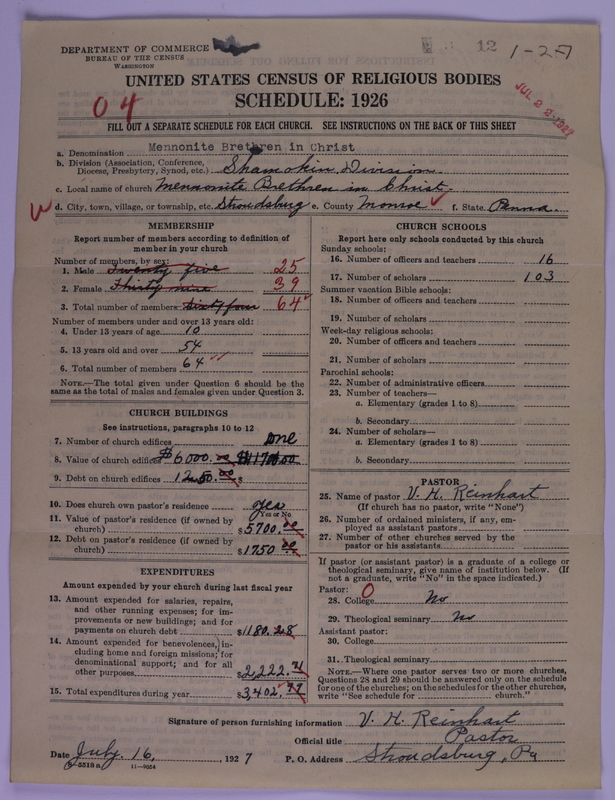 DEPARTMENT OF COMMERCE
BUREAU OF THE CENSUS
WASHINGTON
12 1-27
UNITED STATES CENSUS OF RELIGIOUS BODIES
SCHEDULE: 1926
04
JUL 22 1927
FILL OUT A SEPARATE SCHEDULE FOR EACH CHURCH. SEE INSTRUCTIONS ON THE BACK OF THIS SHEET
a. Denomination Mennonite Brethren in Christ
b. Division (Association, Conference, Diocese, Presbytery, Synod, etc.) Shamokin Division
c. Local name of church Mennonite Brethren in Christ.
d. City, town, village, or township, etc. Stroudsburg e. County Monroe f. State Penna.
MEMBERSHIP
Report number of members according to definition of
member in your church
Number of members, by sex:
1. Male Twenty five 25
2. Female Thirty nine 39
3. Total number of members Sixty four 64
Number of members under and over 13 years old:
4. Under 13 years of age 10
5. 13 years old and over 54
6. Total number of members 64
NOTE.—The total given under Question 6 should be the
same as the total of males and females given under Question 3.
CHURCH BUILDINGS
See instructions, paragraphs 10 to 12
7. Number of church edifices one
8. Value of church edifices $6000.00
9. Debt on church edifices 1250.00 $
10. Does church own pastor's residence yes
Yes or No
11. Value of pastor's residence (if owned by
church) $5700.00
12. Debt on pastor's residence (if owned by
church) $1750.00
EXPENDITURES
Amount expended by your church during last fiscal year
13. Amount expended for salaries, repairs,
and other running expenses; for im-
provements or new building; and for
payments on church debt $1180.28
14. Amount expended for benevolences, in-
cluding home and foreign missions; for
denominational support; and for all
other purposes $2,222.71
15. Total expenditures during year $3,402.99
CHURCH SCHOOLS
Report here only schools conducted by this church
Sunday schools:
16. Number of officers and teachers 16
17. Number of scholars 103
Summer vacation Bible schools:
18. Number of officers and teachers
19. Number of scholars
Week-day religious schools:
20. Number of officers and teachers
21. Number of scholars
Parochial schools:
22. Number of administrative officers
23. Number of teachers—
a. Elementary (grades 1 to 8)
b. Secondary
24. Number of scholars—
a. Elementary (grades 1 to 8)
b. Secondary
PASTOR
25. Name of pastor V. H. Reinhart
(If church has no pastor, write "None")
26. Number of ordained ministers, if any, em-
ployed as assistant pastors
27. Number of other churches served by the
pastor or his assistants
If pastor (or assistant pastor) is a graduate of a college or
theological seminary, give name of institution below. (If
not a graduate, write "No" in the space indicated.)
Pastor: 0
28. College No
29. Theological seminary No
Assistant pastor:
30. College
31. Theological seminary
NOTE.—Where one pastor serves two or more churches,
Questions 28 and 29 should be answered only on the schedule
for one of the churches; on the schedules for the other churches,
write "See schedule for church."
Signature of person furnishing information V. H. Reinhart
Official title Pastor
Date July 16, 1927 P. O. Address Stroudsburg, Pa
5518a 11-9054